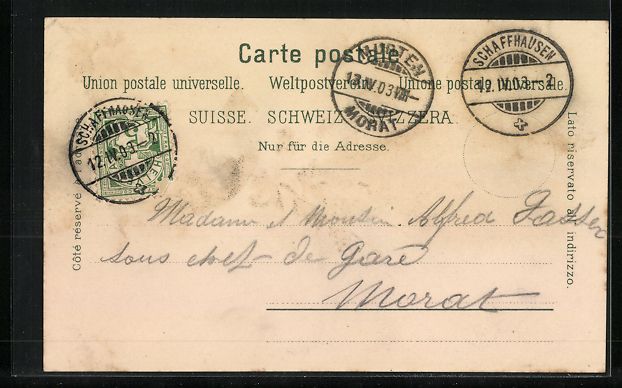 Carte postale.
Union postale universelle. Weltpostverein. Unione postale universale.
SUISSE. SCHWEIZ. SVIZZERA.
Nur für die Adresse.
MURTEN
13.IV.03.VIII
MORAT
SCHAFFHAUSEN
12.IV.03.-2
SCHAFFHAUSEN
12.IV.03.
Côté réservé
Lato riservato all' indirizzo.
Madame et Monsieur Alfred
sous chef de gare
Morat